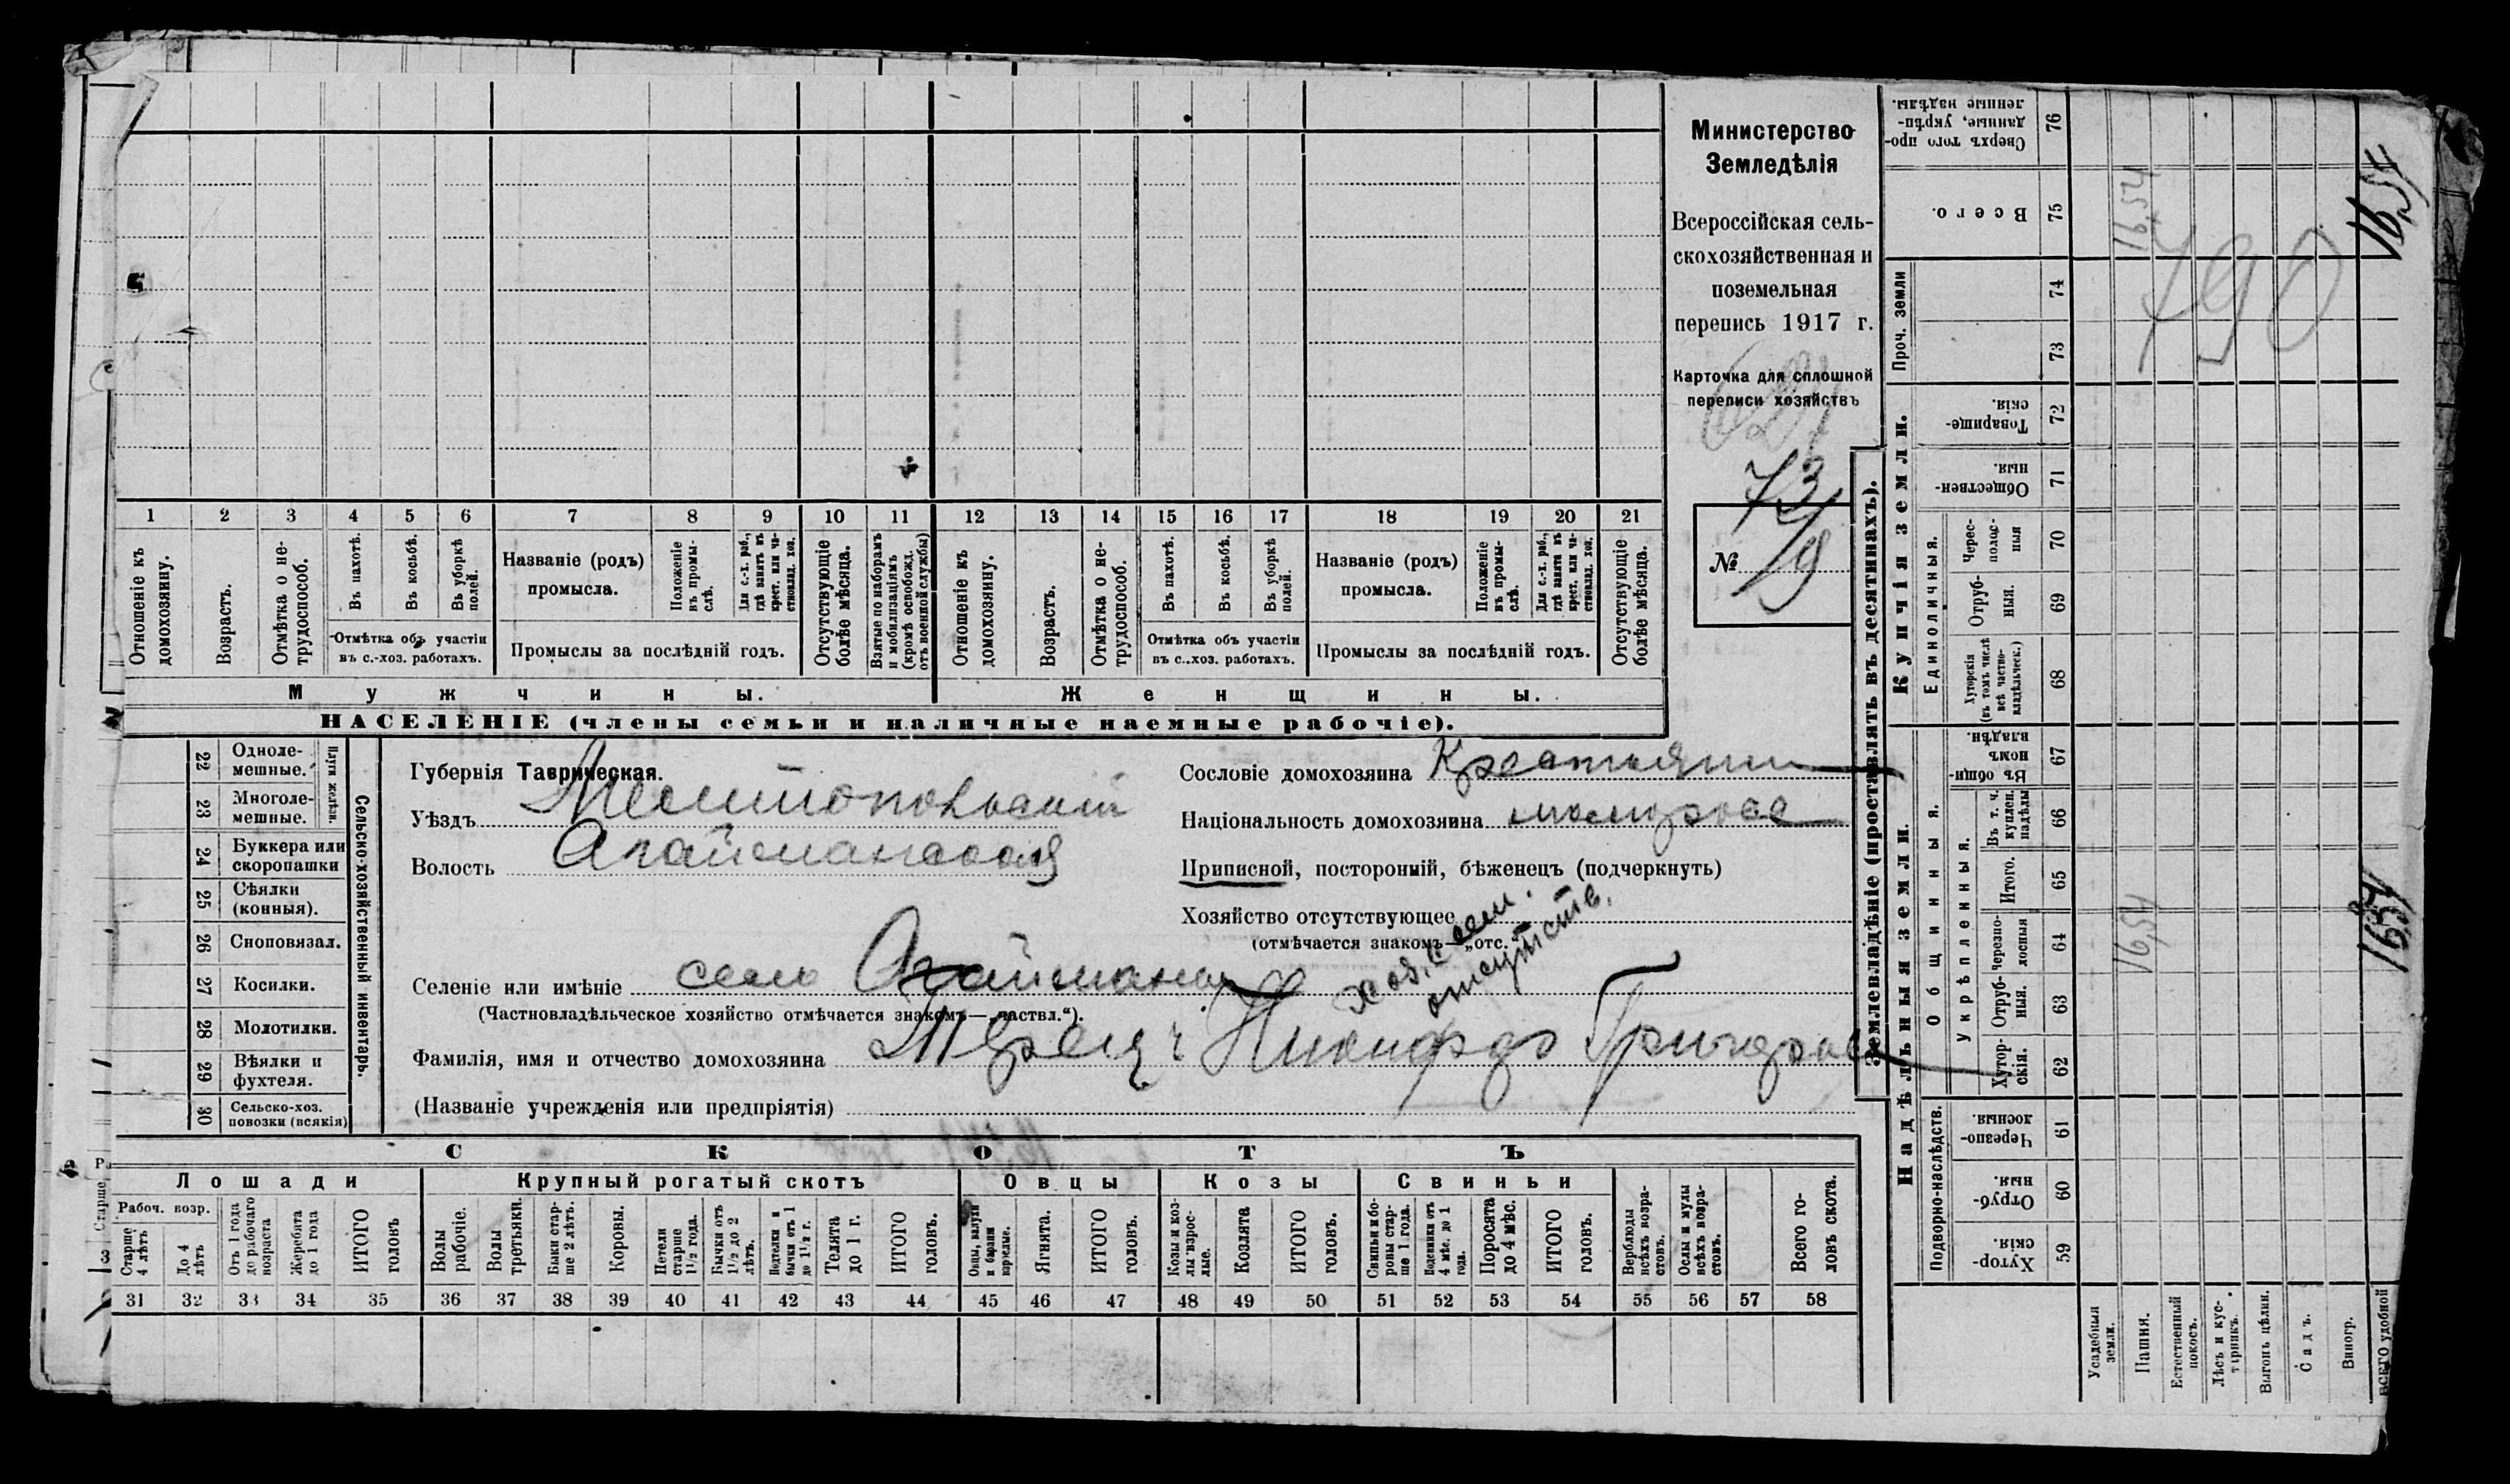 Министерство
Земледѣлія
Всероссійская сель-
скохозяйственная и
поземельная
перепись 1917 г.
Карточка для сплошной
переписи хозяйствъ
73
№ 79
1 2 3 4 5 6 7 8 9 10 11 12 13 14 15 16 17 18 19 20 21
Отношеніе къ домохозяину.
Возрастъ.
Отмѣтка о не-трудоспособ.
Въ пахотѣ.
Въ косьбѣ.
Въ уборкѣ полей.
Отмѣтка объ участіи
въ с.-хоз. работахъ.
Названіе (родъ)
промысла.
Положеніе въ промы-слѣ.
Для с.-х. раб., гдѣ занятъ въ крест. или ча-стновлад. хоз.
Промыслы за послѣдній годъ.
Отсутствующіе болѣе мѣсяца.
Взятые по наборамъ и мобилизаціямъ (кромѣ освобожд. отъ военной службы)
Отношеніе къ домохозяину.
Возрастъ.
Отмѣтка о не-трудоспособ.
Въ пахотѣ.
Въ косьбѣ.
Въ уборкѣ полей.
Отмѣтка объ участіи
въ с.-хоз. работахъ.
Названіе (родъ)
промысла.
Положеніе въ промы-слѣ.
Для с.-х. раб., гдѣ занятъ въ крест. или ча-стновлад. хоз.
Промыслы за послѣдній годъ.
Отсутствующіе болѣе мѣсяца.
Мужчины. Женщины.
НАСЕЛЕНІЕ (члены семьи и наличные наемные рабочіе).
Сельско-хозяйственный инвентарь.
Плуги желѣзн.
22 Одноле-мешные.
23 Многоле-мешные.
24 Буккера или скоропашки
25 Сѣялки (конныя).
26 Сноповязал.
27 Косилки.
28 Молотилки.
29 Вѣялки и фухтеля.
30 Сельско-хоз. повозки (всякія)
Губернія Таврическая.
Уѣздъ Мелитопольскій
Волость Агайманская
Сословіе домохозяина Крестьянин
Національность домохозяина малоросс
Приписной, посторонній, бѣженецъ (подчеркнуть)
Хозяйство отсутствующее
(отмѣчается знакомъ—„отс.“)
хоз. с сем.
отсутств.
Селеніе или имѣніе село Агайманы
(Частновладѣльческое хозяйство отмѣчается знакомъ—„частвл.“).
Фамилія, имя и отчество домохозяина Никифор Григоров
(Названіе учрежденія или предпріятія)
СКОТЪ
Лошади Крупный рогатый скотъ Овцы Козы Свиньи
Рабоч. возр.
Старше 4 лѣтъ
До 4 лѣтъ
Отъ 1 года до рабочаго возраста
Жеребята до 1 года
ИТОГО головъ
Волы рабочіе.
Волы третьяки.
Быки стар-ше 2 лѣтъ.
Коровы.
Нетели старше 1½ года.
Бычки отъ 1½ до 2 лѣтъ.
Подтелки и бычки отъ 1 до 1½ г.
Телята до 1 г.
ИТОГО головъ.
Овцы, валухи и бараны взрослые.
Ягнята.
ИТОГО головъ.
Козы и коз-лы взрос-лые.
Козлята
ИТОГО головъ.
Свиньи и бо-ровы стар-ше 1 года.
Подсвинки отъ 4 мѣс. до 1 года.
Поросята до 4 мѣс.
ИТОГО головъ.
Верблюды всѣхъ возра-стовъ.
Ослы и мулы всѣхъ возра-стовъ.
Всего го-ловъ скота.
31 32 33 34 35 36 37 38 39 40 41 42 43 44 45 46 47 48 49 50 51 52 53 54 55 56 57 58
Землевладѣніе (проставлять въ десятинахъ).
Надѣльныя земли.
Подворно-наслѣдств.
Хутор-скія. 59
Отруб-ныя. 60
Черезпо-лосныя. 61
Общинныя.
Укрѣпленныя.
Хутор-скія. 62
Отруб-ныя. 63
Черезпо-лосныя 64
Итого. 65
Въ т. ч. куплен. надѣлы 66
Въ общи-номъ владѣн. 67
Купчія земли.
Единоличныя.
Хуторскія (въ томъ числѣ всѣ частно-владѣльческ.) 68
Отруб-ныя. 69
Черес-полос-ныя 70
Обществен-ныя. 71
Товарище-скія. 72
Проч. земли
73
74
Всего. 75
Сверхъ того про-данные, укрѣп-ленные надѣлы. 76
Усадебныя земли.
Пашня.
Естественный покосъ.
Лѣсъ и кус-тарникъ.
Выгонъ цѣлин.
Садъ.
Виногр.
ВСЕГО удобной
16,54
16,54
790
1654
1654